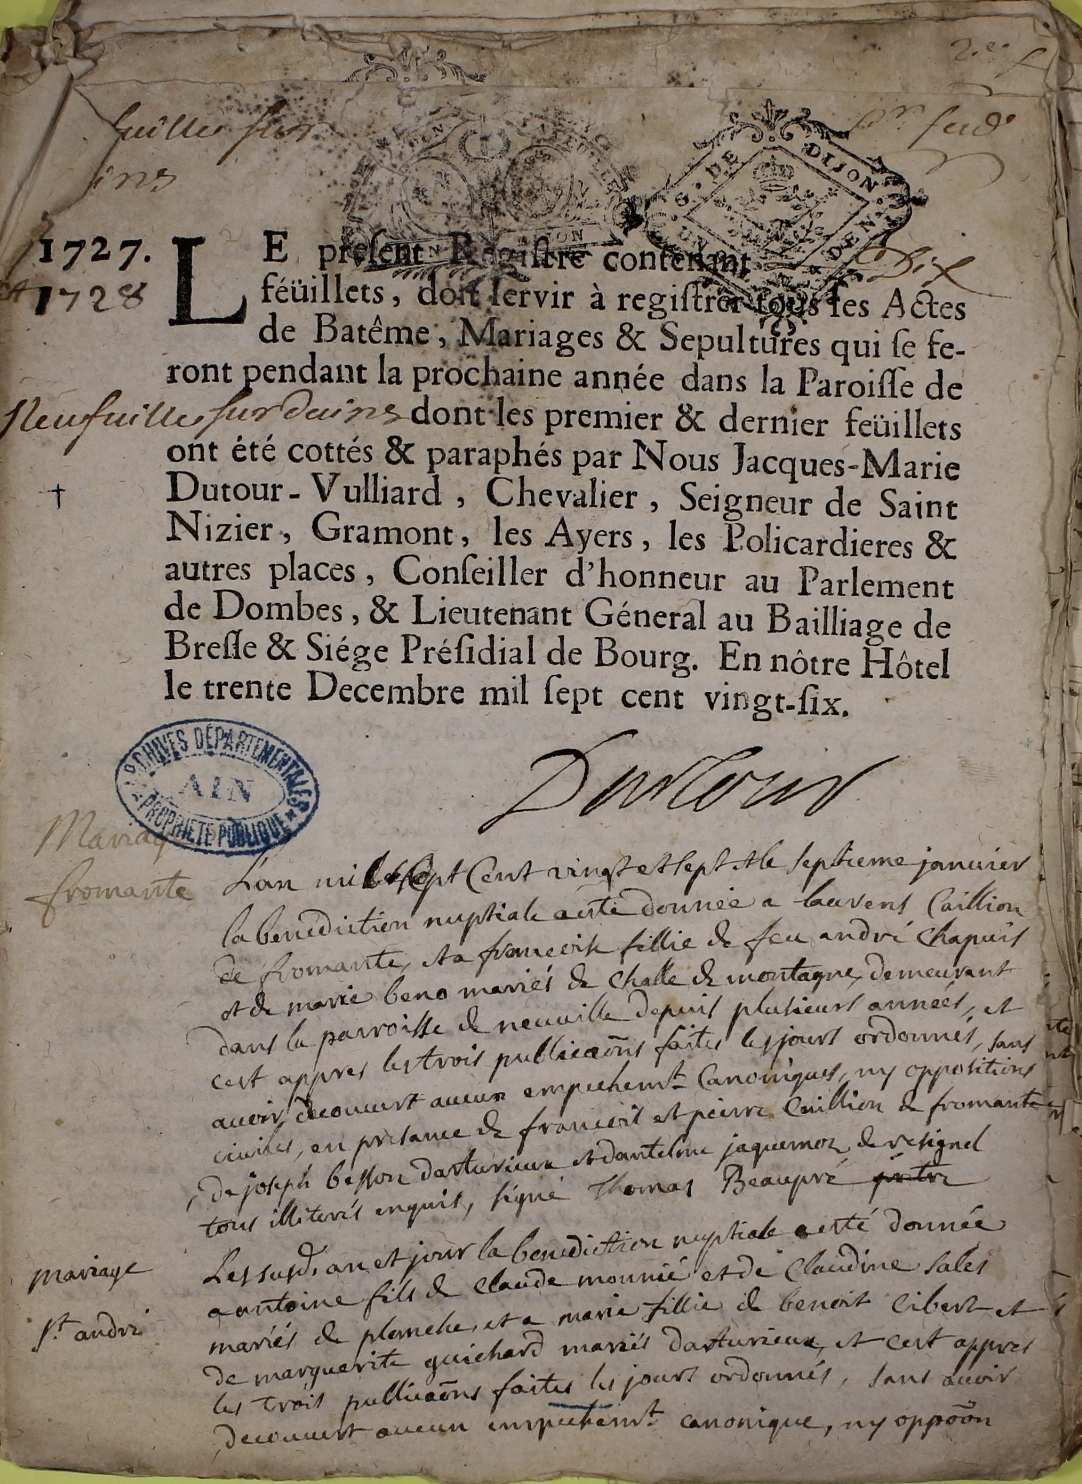 feuilles sur
ins
pr feuds
G. DE DIJON
1727.
et 1728
LE preſent Regiſtre contenant Dix
féüillets, doit ſervir à regiſtrer tous les Actes
de Batême, Mariages & Sepultures qui ſe fe-
ront pendant la prochaine année dans la Paroiſſe de
Neufuilles sur dains dont les premier & dernier feüillets
ont été cottés & paraphés par Nous Jacques-Marie
Dutour-Vulliard, Chevalier, Seigneur de Saint
Nizier, Gramont, les Ayers, les Policardieres &
autres places, Conſeiller d'honneur au Parlement
de Dombes, & Lieutenant Géneral au Bailliage de
Breſſe & Siége Préſidial de Bourg. En nôtre Hôtel
le trente Decembre mil ſept cent vingt-ſix.
Dutour
ARCHIVES DÉPARTEMENTALES
AIN
PROPRIÉTÉ PUBLIQUE
Mariag
fromante
L'an mil sept Cent vingt et sept et le septieme januier
la benediction nuptiale a esté donnée a laurens Caillion
de fromante, et a francoise fillie de feu andré Chapuis
et de marie beno mariés de Challe de montagne, demeurant
dans la parroisse de neuuille depuis plusieurs années, et
cest appres les trois publicaõns faites les jours ordonnés, sans
auoir decouuert aucun empechemt. Canoniques, ny oppositions
ciuiles, en presance de francois et pierre Caillion de fromante
de joseph besson darturieux et dantelme jaquemoz de resignel
tous illiterés enquis, signé Thomas Beaupré prêtre
mariage
st. andré
Les susd. an et jour la benediction nuptiale a esté donnée
a antoine fils de Claude monnié et de Claudine sales
mariés de planche, et a marie fillie de benoit Cibert et
de marguerite guichard mariés darturieux, et cest appres
les trois publicaõns faites les jours ordonnés, sans auoir
decouuert aucun empechemt. canonique, ny oppoõn